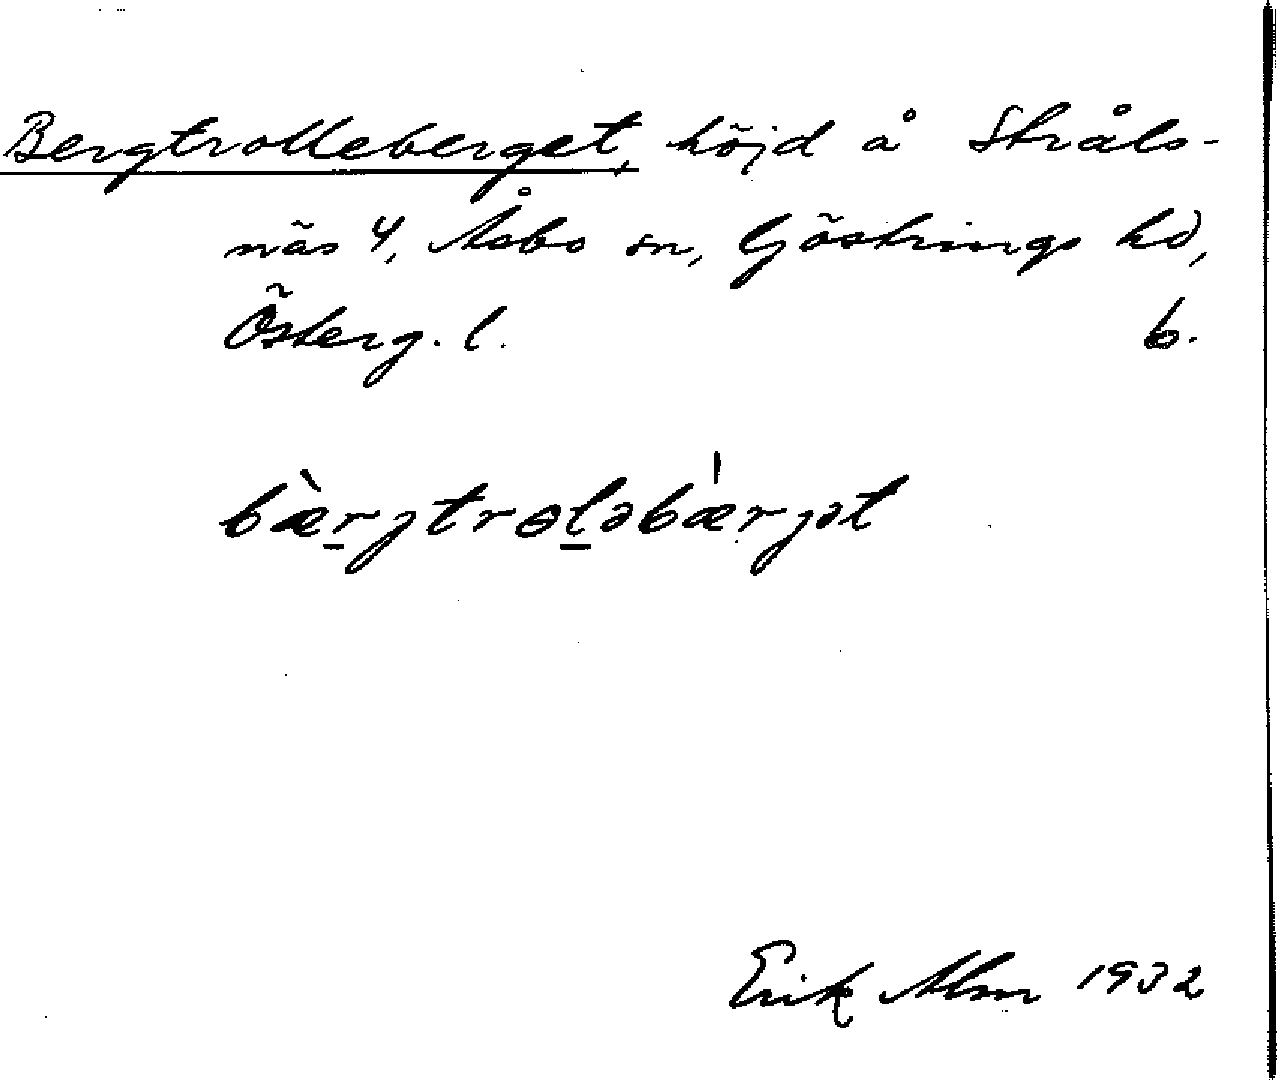 Bergtrolleberget, höjd å Stråls-
näs 4, Åsbo sn, Göstrings hd,
Österg. l. b.
bæ̀r̲jtrɵl̲əbæ̍rjət
Erik Alm 1932